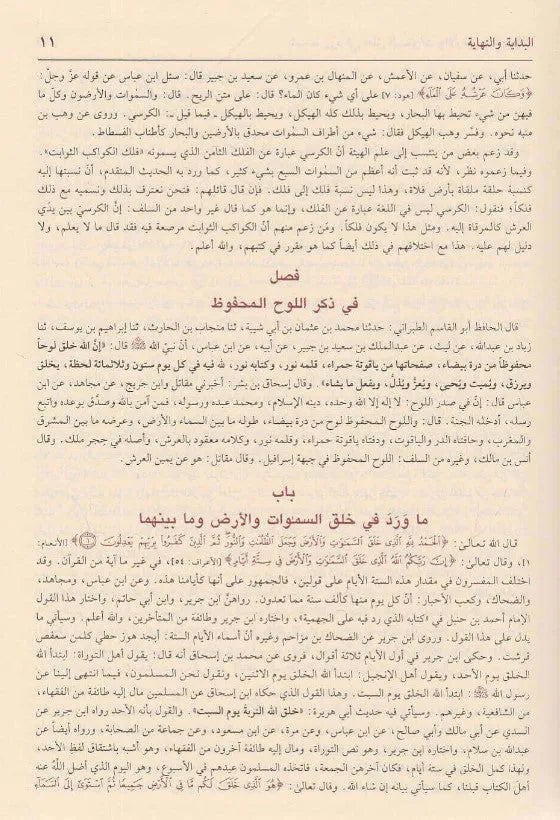 البداية والنهاية
١١
حدثنا أبي، عن سفيان، عن الأعمش، عن المنهال بن عمرو، عن سعيد بن جبير قال: سئل ابن عباس عن قوله عزّ وجلّ:
﴿وَكَانَ عَرْشُهُ عَلَى الْمَآءِ﴾ [هود: ٧] على أي شيء كان الماء؟ قال: على متن الريح. قال: والسمٰوات والأرضون وكلّ ما
فيهن من شيء تحيط بها البحار، ويحيط بذلك كله الهيكل، ويحيط بالهيكل ـ فيما قيل ـ: الكرسي. وروى عن وهب بن
منبه نحوه. وفسَّر وهب الهيكل فقال: شيء من أطراف السمٰوات محدق بالأرضين والبحار كأطناب الفسطاط.
وقد زعم بعض من ينتسب إلى علم الهيئة أنّ الكرسي عبارة عن الفلك الثامن الذي يسمونه «فلك الكواكب الثوابت».
وفيما زعموه نظر، لأنه قد ثبت أنه أعظم من السمٰوات السبع بشيء كثير، كما ورد به الحديث المتقدم، أنّ نسبتها إليه
كنسبة حلقة ملقاة بأرض فلاة، وهذا ليس نسبة فلك إلى فلك. فإن قال قائلهم: فنحن نعترف بذلك ونسميه مع ذلك
فلكاً؛ فنقول: الكرسي ليس في اللغة عبارة عن الفلك، وإنما هو كما قال غير واحد من السلف: إنّ الكرسيّ بين يدي
العرش كالمرقاة إليه. ومثل هذا لا يكون فلكاً. ومَن زعم منهم أنّ الكواكب الثوابت مرصعة فيه فقد قال ما لا يعلم، ولا
دليل لهم عليه. هذا مع اختلافهم في ذلك أيضاً كما هو مقرر في كتبهم، والله أعلم.
فصل
في ذكر اللوح المحفوظ
قال الحافظ أبو القاسم الطبراني: حدثنا محمد بن عثمان بن أبي شيبة، ثنا منجاب بن الحارث، ثنا إبراهيم بن يوسف، ثنا
زياد بن عبدالله، عن ليث، عن عبدالملك بن سعيد بن جبير، عن أبيه، عن ابن عباس، أنّ نبيّ الله ﷺ قال: «إنّ الله خلق لوحاً
محفوظاً من درة بيضاء، صفحاتها من ياقوتة حمراء، قلمه نور، وكتابه نور، لله فيه في كل يوم ستون وثلاثمائة لحظة، يخلق
ويرزق، ويُميت ويُحيي، ويُعزُّ ويُذلُّ، ويفعل ما يشاء». وقال إسحاق بن بشر: أخبرني مقاتل وابن جريج، عن مجاهد، عن ابن
عباس قال: إنّ في صدر اللوح: لا إله إلا الله وحده، دينه الإسلام، ومحمد عبده ورسوله، فمن آمن بالله وصدّق بوعده واتبع
رسله، أدخلَه الجنة. قال: واللوح المحفوظ لوح من درة بيضاء، طوله ما بين السماء والأرض، وعرضه ما بين المشرق
والمغرب، وحافتاه الدر والياقوت، ودفتاه ياقوتة حمراء، وقلمه نور، وكلامه معقود بالعرش، وأصله في حِجر ملك. وقال
أنس بن مالك، وغيره من السلف: اللوح المحفوظ في جبهة إسرافيل. وقال مقاتل: هو عن يمين العرش.
باب
ما وَرَدَ في خلق السمٰوات والأرض وما بينهما
قال الله تعالىٰ: ﴿الْحَمْدُ لِلَّهِ الَّذِى خَلَقَ السَّمَٰوَٰتِ وَالْأَرْضَ وَجَعَلَ الظُّلُمَٰتِ وَالنُّورَ ثُمَّ الَّذِينَ كَفَرُوا بِرَبِّهِمْ يَعْدِلُونَ ١﴾ [الأنعام:
١]، وقال تعالىٰ: ﴿إِنَّ رَبَّكُمُ اللَّهُ الَّذِى خَلَقَ السَّمَٰوَٰتِ وَالْأَرْضَ فِى سِتَّةِ أَيَّامٍ﴾ [الأعراف: ٥٤]، في غير ما آية من القرآن. وقد
اختلف المفسرون في مقدار هذه الستة الأيام على قولين، فالجمهور على أنها كأيامنا هذه. وعن ابن عباس، ومجاهد،
والضحاك، وكعب الأحبار: أنّ كل يوم منها كألف سنة مما تعدون. رواهنّ ابن جرير، وابن أبي حاتم، واختار هذا القول
الإمام أحمد بن حنبل في «كتابه الذي رد فيه على الجهمية»، واختاره ابن جرير وطائفة من المتأخرين، والله أعلم. وسيأتي ما
يدل على هذا القول. وروى ابن جرير عن الضحاك بن مزاحم وغيره أنّ أسماء الأيام الستة: أبجد هوز حطي كلمن سعفص
قرشت. وحكى ابن جرير في أول الأيام ثلاثة أقوال، فروى عن محمد بن إسحاق أنه قال: يقول أهل التوراة: ابتدأ الله
الخلق يوم الأحد، ويقول أهل الإنجيل: ابتدأ الله الخلق يوم الاثنين، ونقول نحن المسلمون، فيما انتهى إلينا عن
رسول الله ﷺ: ابتدأ الله الخلق يوم السبت. وهذا القول الذي حكاه ابن إسحاق عن المسلمين مال إليه طائفة من الفقهاء،
من الشافعية، وغيرهم. وسيأتي فيه حديث أبي هريرة: «خلق الله التربةَ يوم السبت». والقول بأنه الأحد رواه ابن جرير، عن
السدي عن أبي مالك وأبي صالح، عن ابن عباس، وعن مرة، عن ابن مسعود، وعن جماعة من الصحابة، ورواه أيضاً عن
عبدالله بن سلام، واختاره ابن جرير، وهو نص التوراة، ومال إليه طائفة آخرون من الفقهاء، وهو أشبه باشتقاق لفظ الأحد،
ولهذا كمل الخلق في ستة أيام، فكان آخرهن الجمعة، فاتخذه المسلمون عيدهم في الأسبوع، وهو اليوم الذي أضل اللَّهُ عنه
أهل الكتاب قبلنا، كما سيأتي بيانه إن شاء الله. وقال تعالىٰ: ﴿هُوَ الَّذِى خَلَقَ لَكُم مَّا فِى الْأَرْضِ جَمِيعًا ثُمَّ اسْتَوَىٰٓ إِلَى السَّمَآءِ